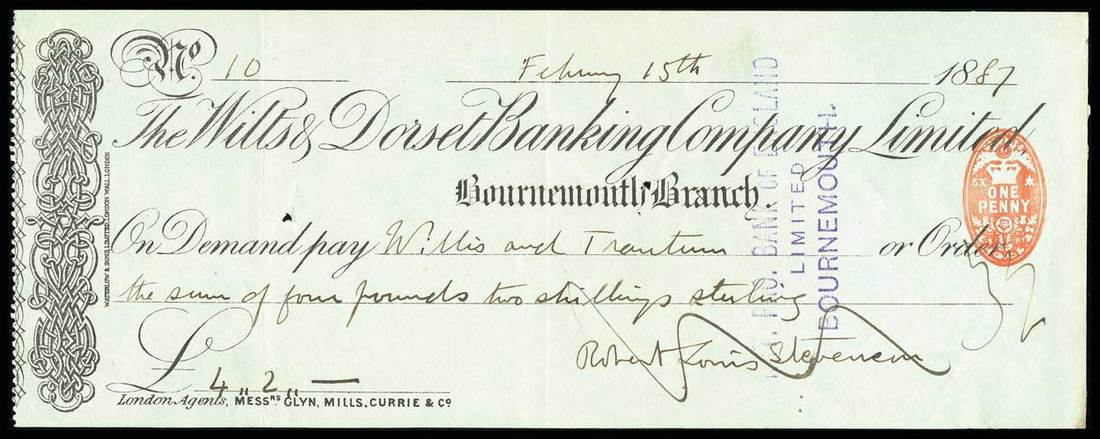 No. 10 February 15th 1887
The Wilts & Dorset Banking Company Limited,
Bournemouth Branch.
On Demand pay Willis and Trantum or Order
the sum of four pounds two shillings sterling
Robert Louis Stevenson
£ 4,, 2,, —
London Agents, MESSRS GLYN, MILLS, CURRIE & Co
WATERLOW & SONS LIMITED, LONDON WALL, LONDON
ONE
PENNY
BANK OF ENGLAND
LIMITED
BOURNEMOUTH.